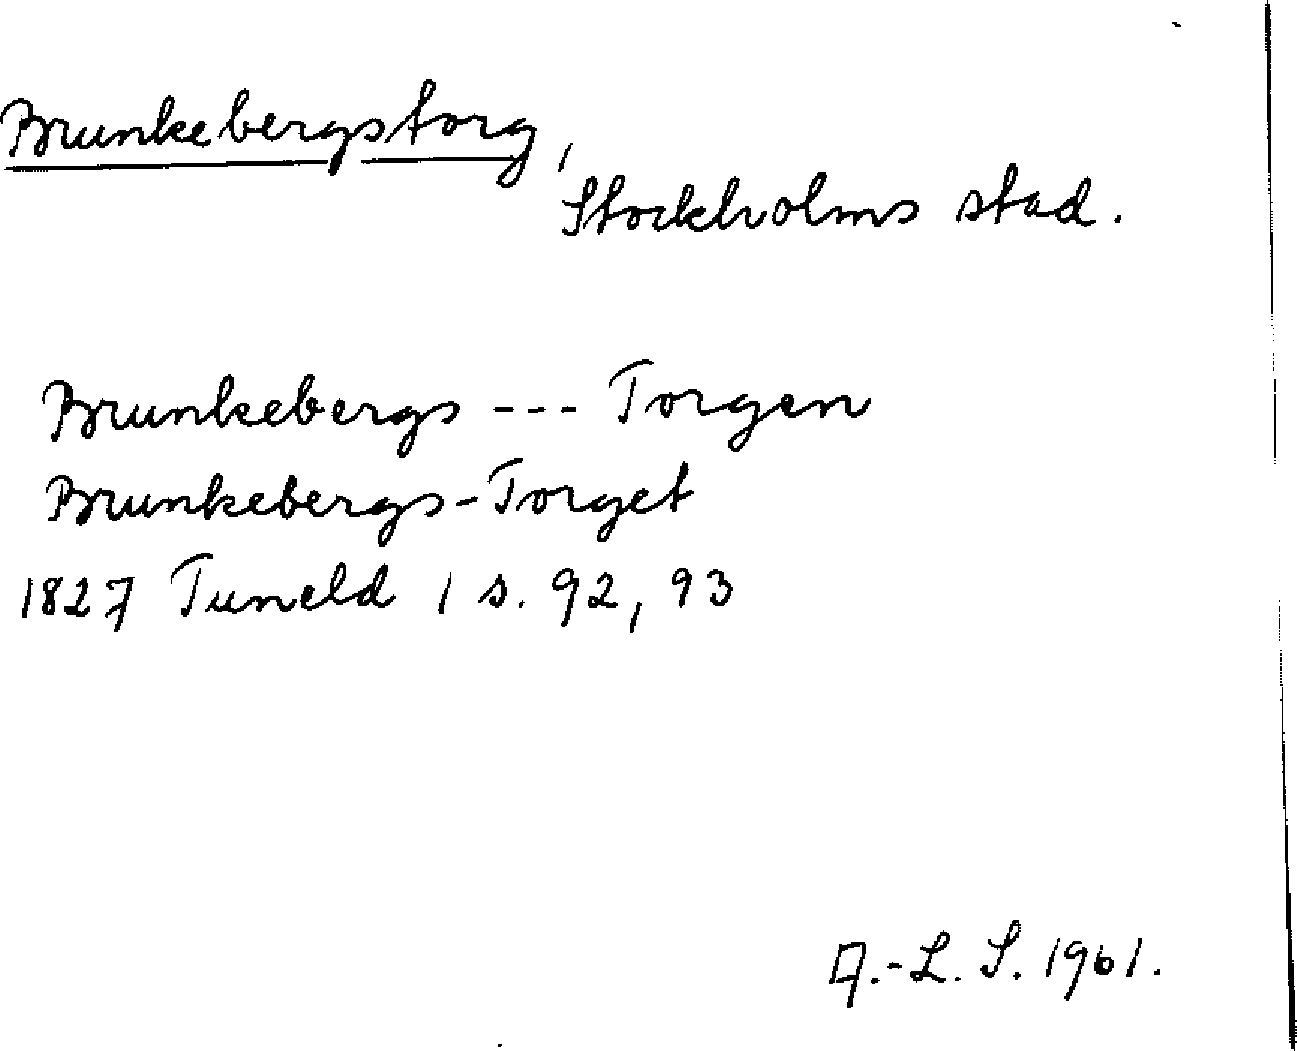 Brunkebergstorg,
Stockholms stad.
Brunkebergs --- Torgen
Brunkebergs-Torget
1827 Tuneld 1 s. 92, 93
A.-L. S. 1961.